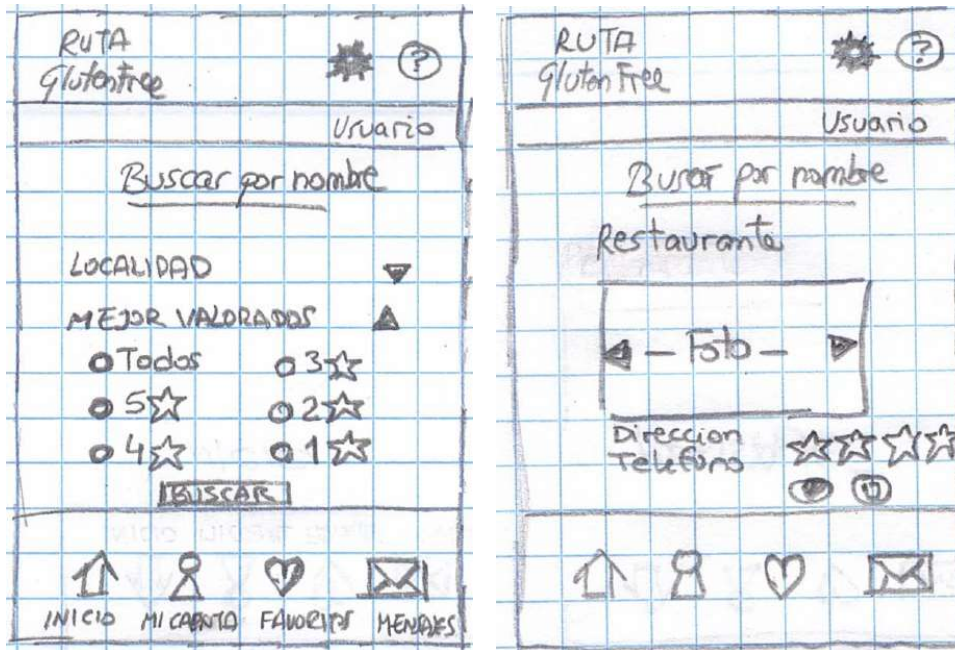 RUTA
Gluten Free
?
Usuario
Buscar por nombre
LOCALIDAD
MEJOR VALORADOS
Todos
3
5
2
4
1
BUSCAR
INICIO MI CUENTA FAVORITOS MENSAJES
RUTA
Gluten Free
?
Usuario
Buscar por nombre
Restaurante
- Foto -
Direccion
Telefono